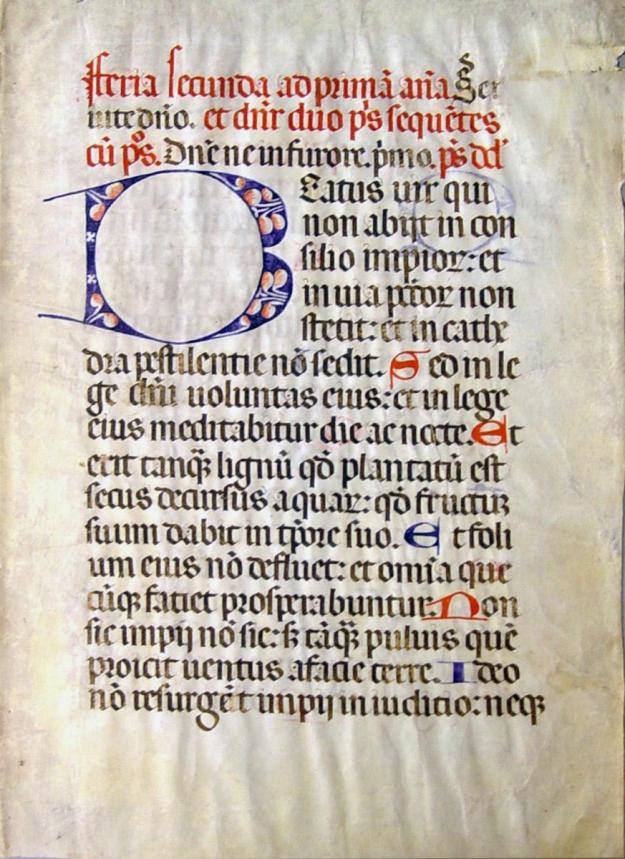 Feria secunda ad primā añā Ser
uite dño. et dñr duo ps sequētes
cū p̄s. Dñe ne in furore. p̄mo. ps dd̄
Beatus uir qui
non abijt in con
silio impioꝝ: et
in uia pctoꝝ non
stetit: et in cathe
dra pestilentie nō sedit. Sed in le
ge dñi uoluntas eius: et in lege
eius meditabitur die ac nocte. Et
erit tanqꝫ lignū qḋ plantatū est
secus decursus aquaꝝ: qḋ fructuꝫ
suum dabit in tp̄ore suo. Et foli
um eius nō defluet: et omīa que
cūqꝫ faciet prosperabuntur. Non
sic impij nō sic: sꝫ tāqꝫ puluis quē
proicit uentus a facie terre. Ideo
nō resurgēt impij in iudicio: neqꝫ